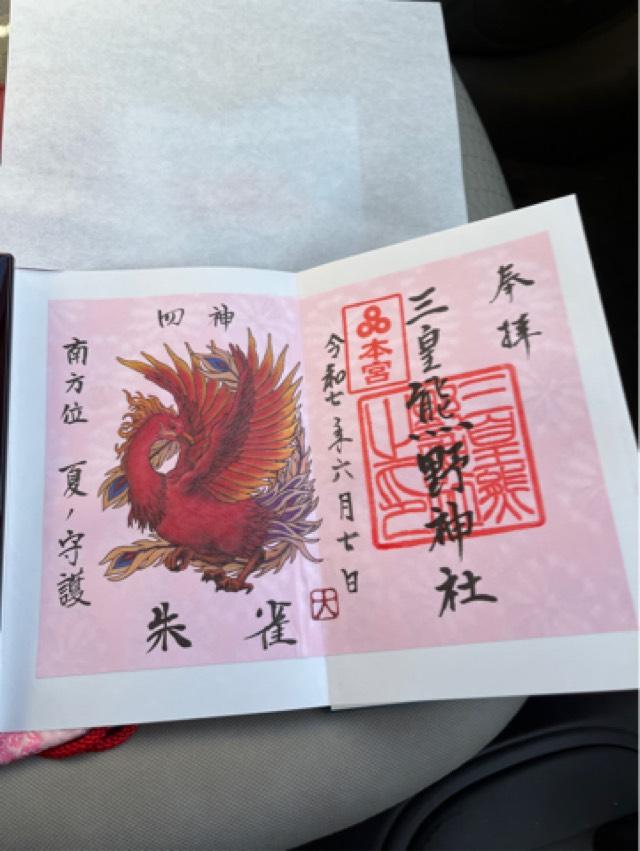 奉拝
三皇熊野神社
本宮
三皇熊
令和七年六月七日
大
四神
朱雀
南方位 夏ノ守護